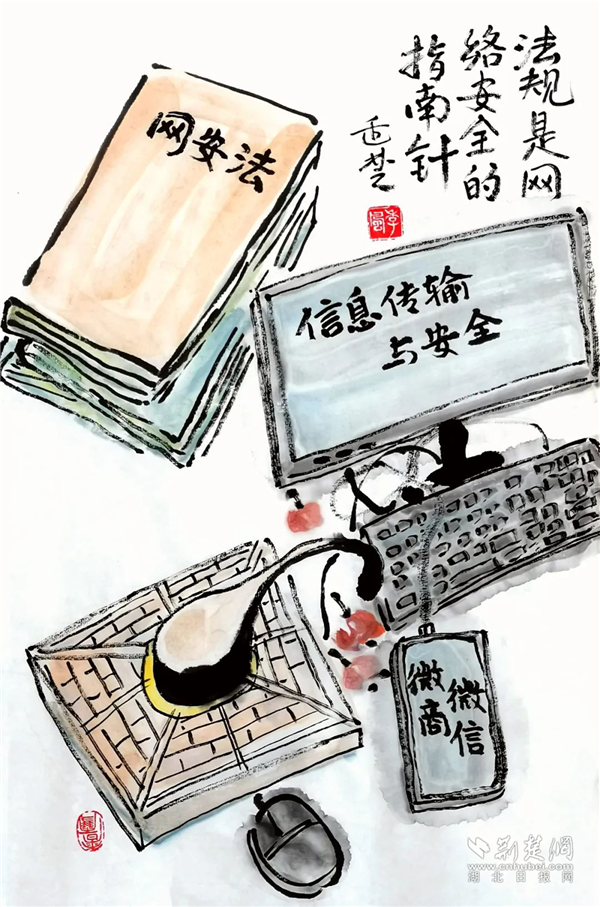 法规是网
络安全的
指南针
网安法
信息传输
与安全
微信
微商
荆楚网
www.cnhubei.com
湖北日报网